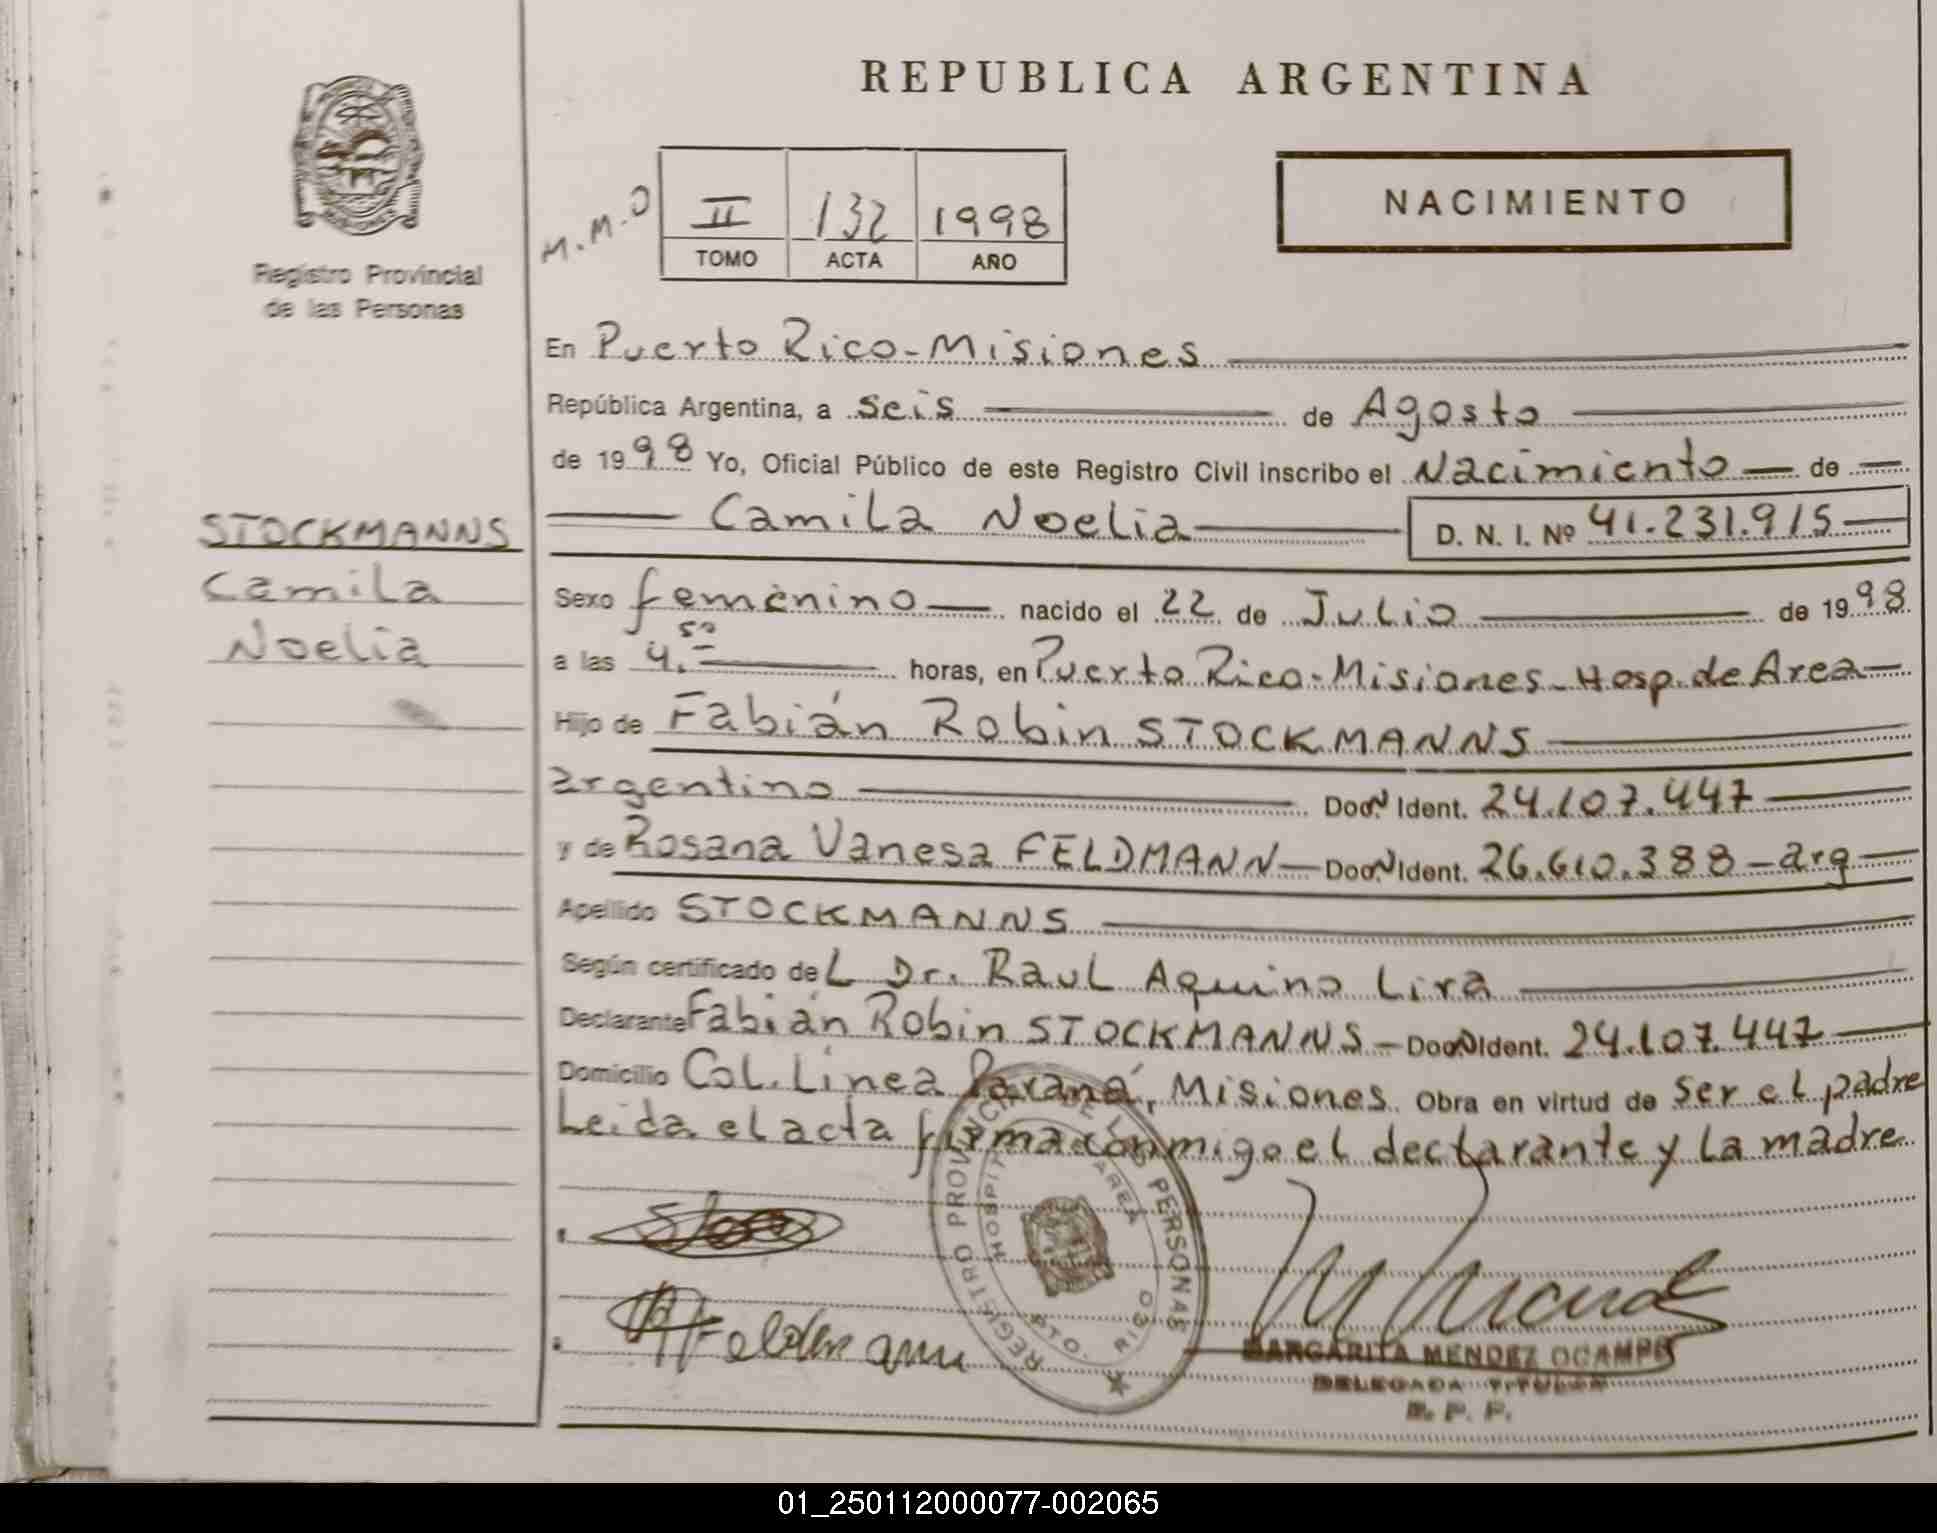 REPUBLICA ARGENTINA
Registro Provincial
de las Personas
M.M.O
II 132 1998
TOMO ACTA AÑO
NACIMIENTO
STOCKMANNS
Camila
Noelia
En Puerto Rico-Misiones
República Argentina, a seis de Agosto
de 1998 Yo, Oficial Público de este Registro Civil inscribo el Nacimiento de
Camila Noelia D. N. I. Nº 41.231.915
Sexo femenino nacido el 22 de Julio de 1998
a las 4.50 horas, en Puerto Rico-Misiones-Hosp.de Area
Hijo de Fabián Robin STOCKMANNS
argentino Doc. N Ident. 24.107.447
y de Rosana Vanesa FELDMANN-Doc.N Ident. 26.610.388-arg
Apellido STOCKMANNS
Según certificado del Dr. Raul Aquino Lira
Declarante Fabián Robin STOCKMANNS-Doc N Ident. 24.107.447
Domicilio Col. Línea Paraná, Misiones. Obra en virtud de ser el padre
Leida el acta firma conmigo el declarante y la madre.
REGISTRO PROVINCIAL DE LAS PERSONAS
HOSPITAL AREA
PTO. RICO
Feldmann
MARGARITA MENDEZ OCAMPO
DELEGADA TITULAR
R. P. P.
01_250112000077-002065